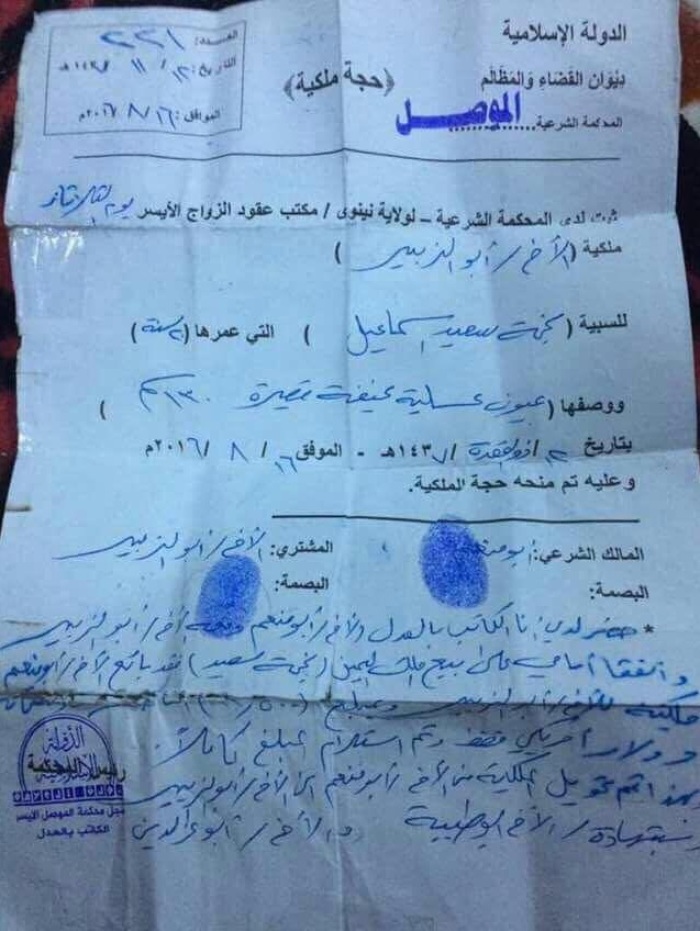 الدولة الإسلامية
ديوان القضاء والمظالم
المحكمة الشرعية..الموصل
﴿حجة ملكية﴾
العدد: ٢٢١
التاريخ: ١٢ / ١١ / هـ
الموافق: ١٦ / ٨ / ٢٠١٦م
ثبت لدى المحكمة الشرعية – لولاية نينوى / مكتب عقود الزواج الأيسر يوم الثلاثاء
ملكية (الأخ / أبو الزبير)
للسبية ( سعيد إسماعيل ) التي عمرها (٢٠ سنة)
ووصفها (عيون عسلية نحيفة قصيرة ١٣٠ سم)
بتاريخ ١٢ / ذو القعدة / ١٤٣٧هـ - الموفق ١٦ / ٨ / ٢٠١٦م
وعليه تم منحه حجة الملكية.
المالك الشرعي: أبو منعم المشتري: الأخ / أبو الزبير
البصمة: البصمة:
* حضر لدي أنا الكاتب بالعدل الأخ / أبو منعم ومعه أخ / أبو الزبير
واتفقا أمامي على بيع ملك اليمين ( سعيد) فقد بائع الأخ / أبو منعم
ملكيته للأخ / أبو الزبير وبمبلغ
دولار أمريكي فقط وتم استلام المبلغ كاملاً.
تم تحويل الملكية من الأخ / أبو منعم الى الأخ / أبو الزبير
وبشهادة / الأخ والأخ / أبو عز الدين
الدولة الإسلامية
رئيس المحكمة
محكمة الموصل الأيسر
الكاتب بالعدل